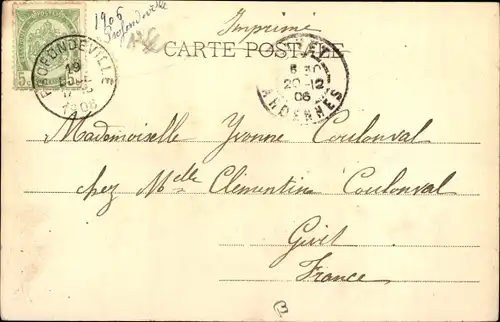 1906
Profondeville
Imprimé
CARTE POSTALE
PROFONDEVILLE
19
1906
5
GIVET
6 30
20 -12
06
ARDENNES
Mademoiselle Yvonne Coulonval
chez Melle Clémentine Coulonval
Givet
France